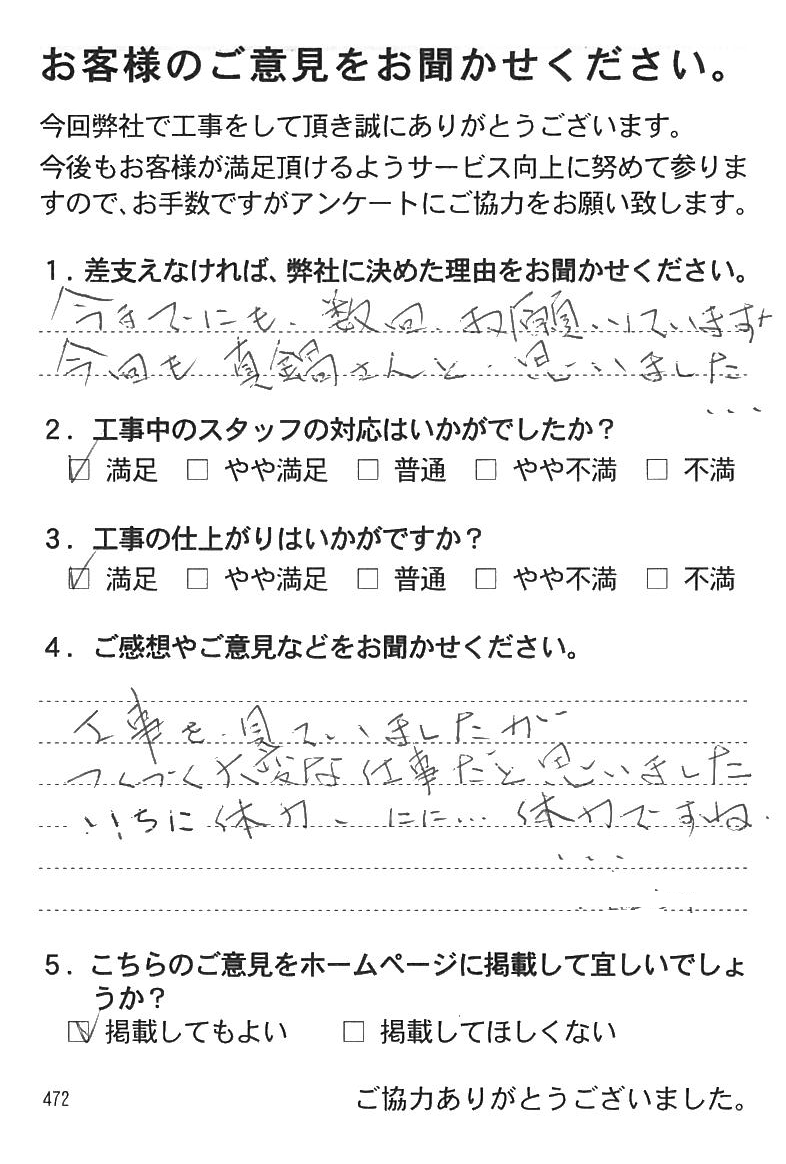 お客様のご意見をお聞かせください。
今回弊社で工事をして頂き誠にありがとうございます。
今後もお客様が満足頂けるようサービス向上に努めて参りま
すので、お手数ですがアンケートにご協力をお願い致します。
1. 差支えなければ、弊社に決めた理由をお聞かせください。
今までにも、数回、お願いしています
今回も真鍋さんと思いました
...
2. 工事中のスタッフの対応はいかがでしたか？
☑ 満足 □ やや満足 □ 普通 □ やや不満 □ 不満
3. 工事の仕上がりはいかがですか？
☑ 満足 □ やや満足 □ 普通 □ やや不満 □ 不満
4. ご感想やご意見などをお聞かせください。
工事を見ていましたが
つくづく大変な仕事だと思いました
いちに体力、ににに... 体力ですね.
...
5. こちらのご意見をホームページに掲載して宜しいでしょ
うか？
☑ 掲載してもよい □ 掲載してほしくない
472
ご協力ありがとうございました。